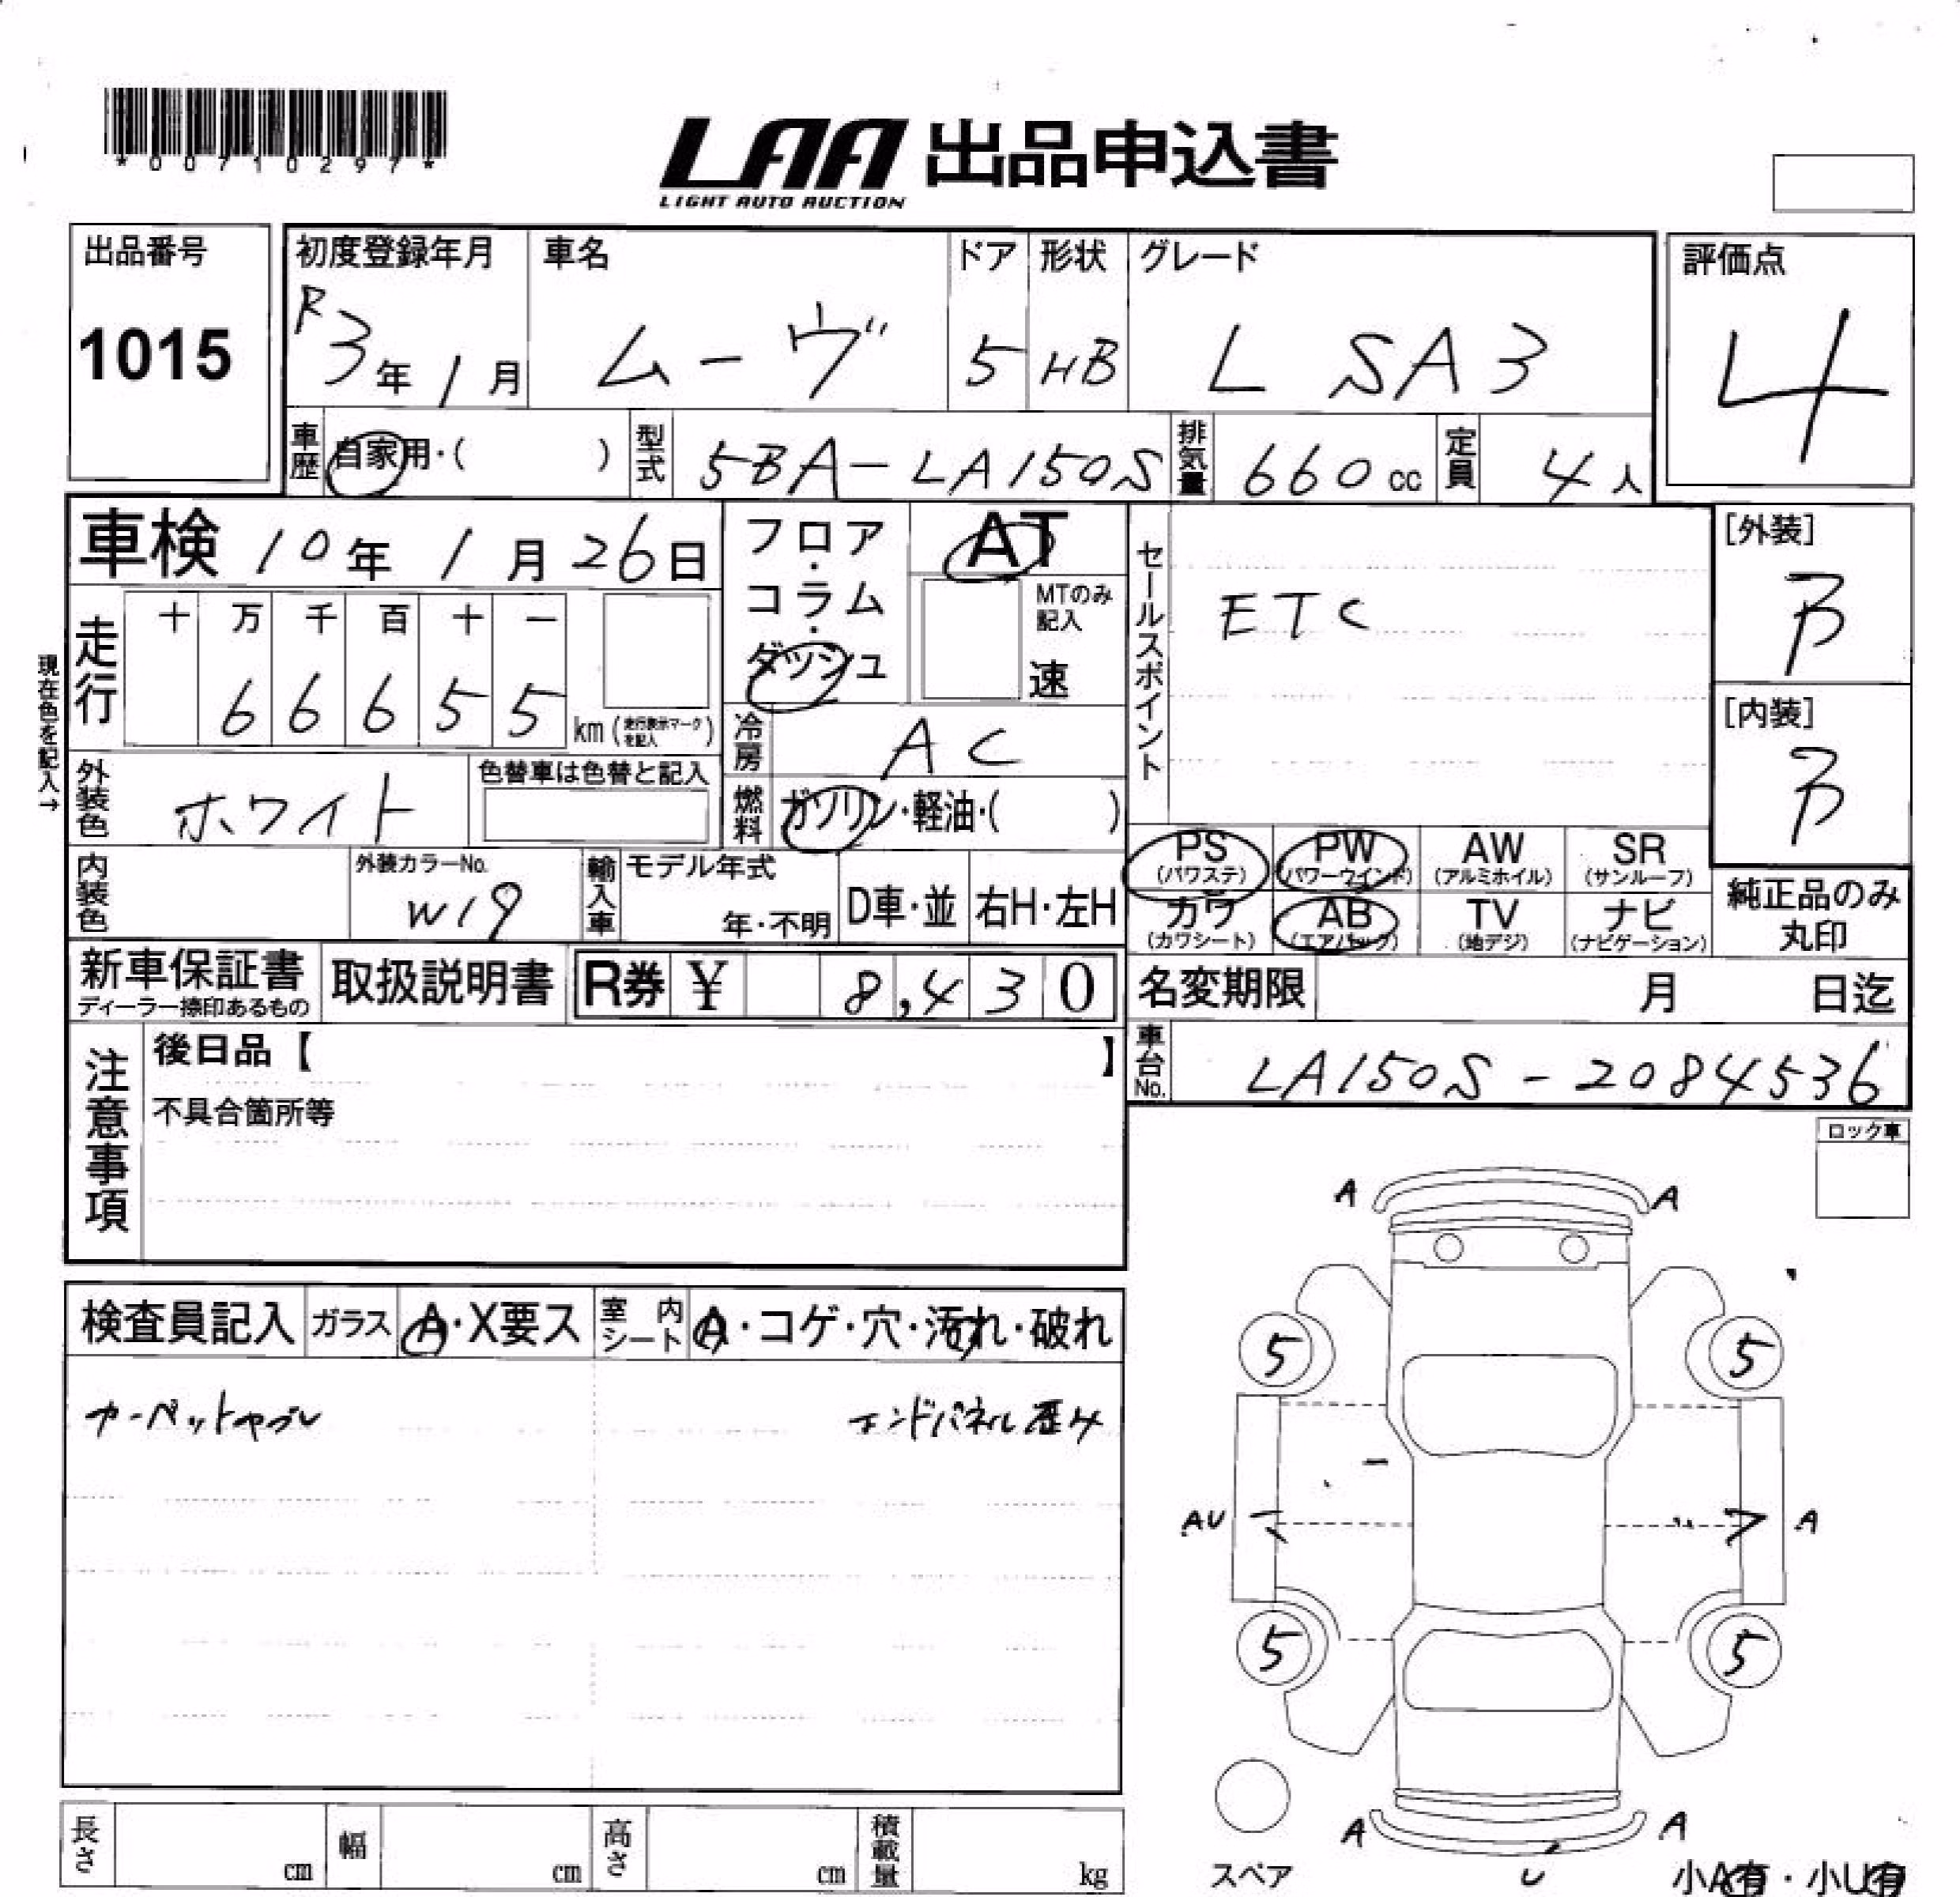 *00710297*
LAA 出品申込書
LIGHT AUTO AUCTION
出品番号
1015
初度登録年月
R3年1月
車名
ムーヴ
ドア
5
形状
HB
グレード
L SA3
評価点
4
車歴
自家用・( )
型式
5BA-LA150S
排気量
660cc
定員
4人
車検 10年1月26日
フロア・コラム・ダッシュ
AT
MTのみ記入
速
セールスポイント
ETC
[外装]
B
[内装]
B
現在色を記入→
走行
十 万 千 百 十 一
6 6 6 5 5
km(走行表示マークを記入)
冷房
AC
外装色
ホワイト
色替車は色替と記入
燃料
ガソリン・軽油・( )
内装色
外装カラーNo.
W19
輸入車
モデル年式
年・不明
D車・並
右H・左H
PS (パワステ)
PW (パワーウインド)
AW (アルミホイル)
SR (サンルーフ)
カワ (カワシート)
AB (エアバック)
TV (地デジ)
ナビ (ナビゲーション)
純正品のみ
丸印
新車保証書
ディーラー捺印あるもの
取扱説明書
R券 ¥ 8,430
名変期限
月 日迄
注意事項
後日品【 】
不具合箇所等
車台No.
LA150S-2084536
ロック車
検査員記入
ガラス
A・X要ス
室内シート
A・コゲ・穴・汚れ・破れ
カーペットヤブレ
エンドパネル歪み
A A
5 5
AU A
5 5
A A
U
スペア
小A有・小U有
長さ cm
幅 cm
高さ cm
積載量 kg